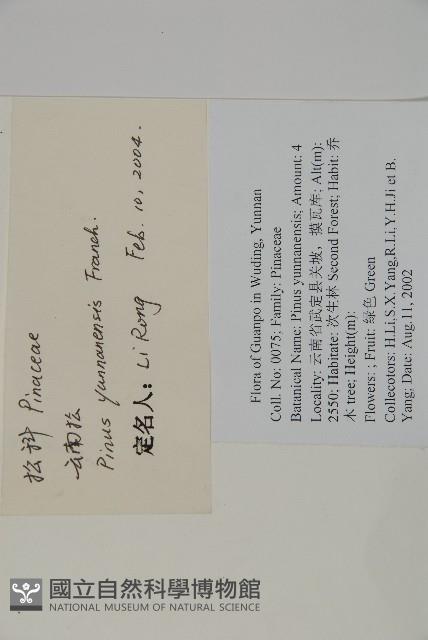 松科 Pinaceae
云南松
Pinus yunnanensis Franch.
定名人: Li Rong Feb. 10, 2004.
Flora of Guanpo in Wuding, Yunnan
Coll. No: 0075; Family: Pinaceae
Batanical Name: Pinus yunnanensis; Amount: 4
Locality: 云南省武定县关坡，摸瓦库; Alt(m):
2550; Habitate: 次生林 Second Forest; Habit: 乔
木 tree; Height(m):
Flowers: ; Fruit: 绿色 Green
Collecotors: H.Li,S.X.Yang,R.Li,Y.H.Ji et B.
Yang; Date: Aug.11, 2002
國立自然科學博物館
NATIONAL MUSEUM OF NATURAL SCIENCE